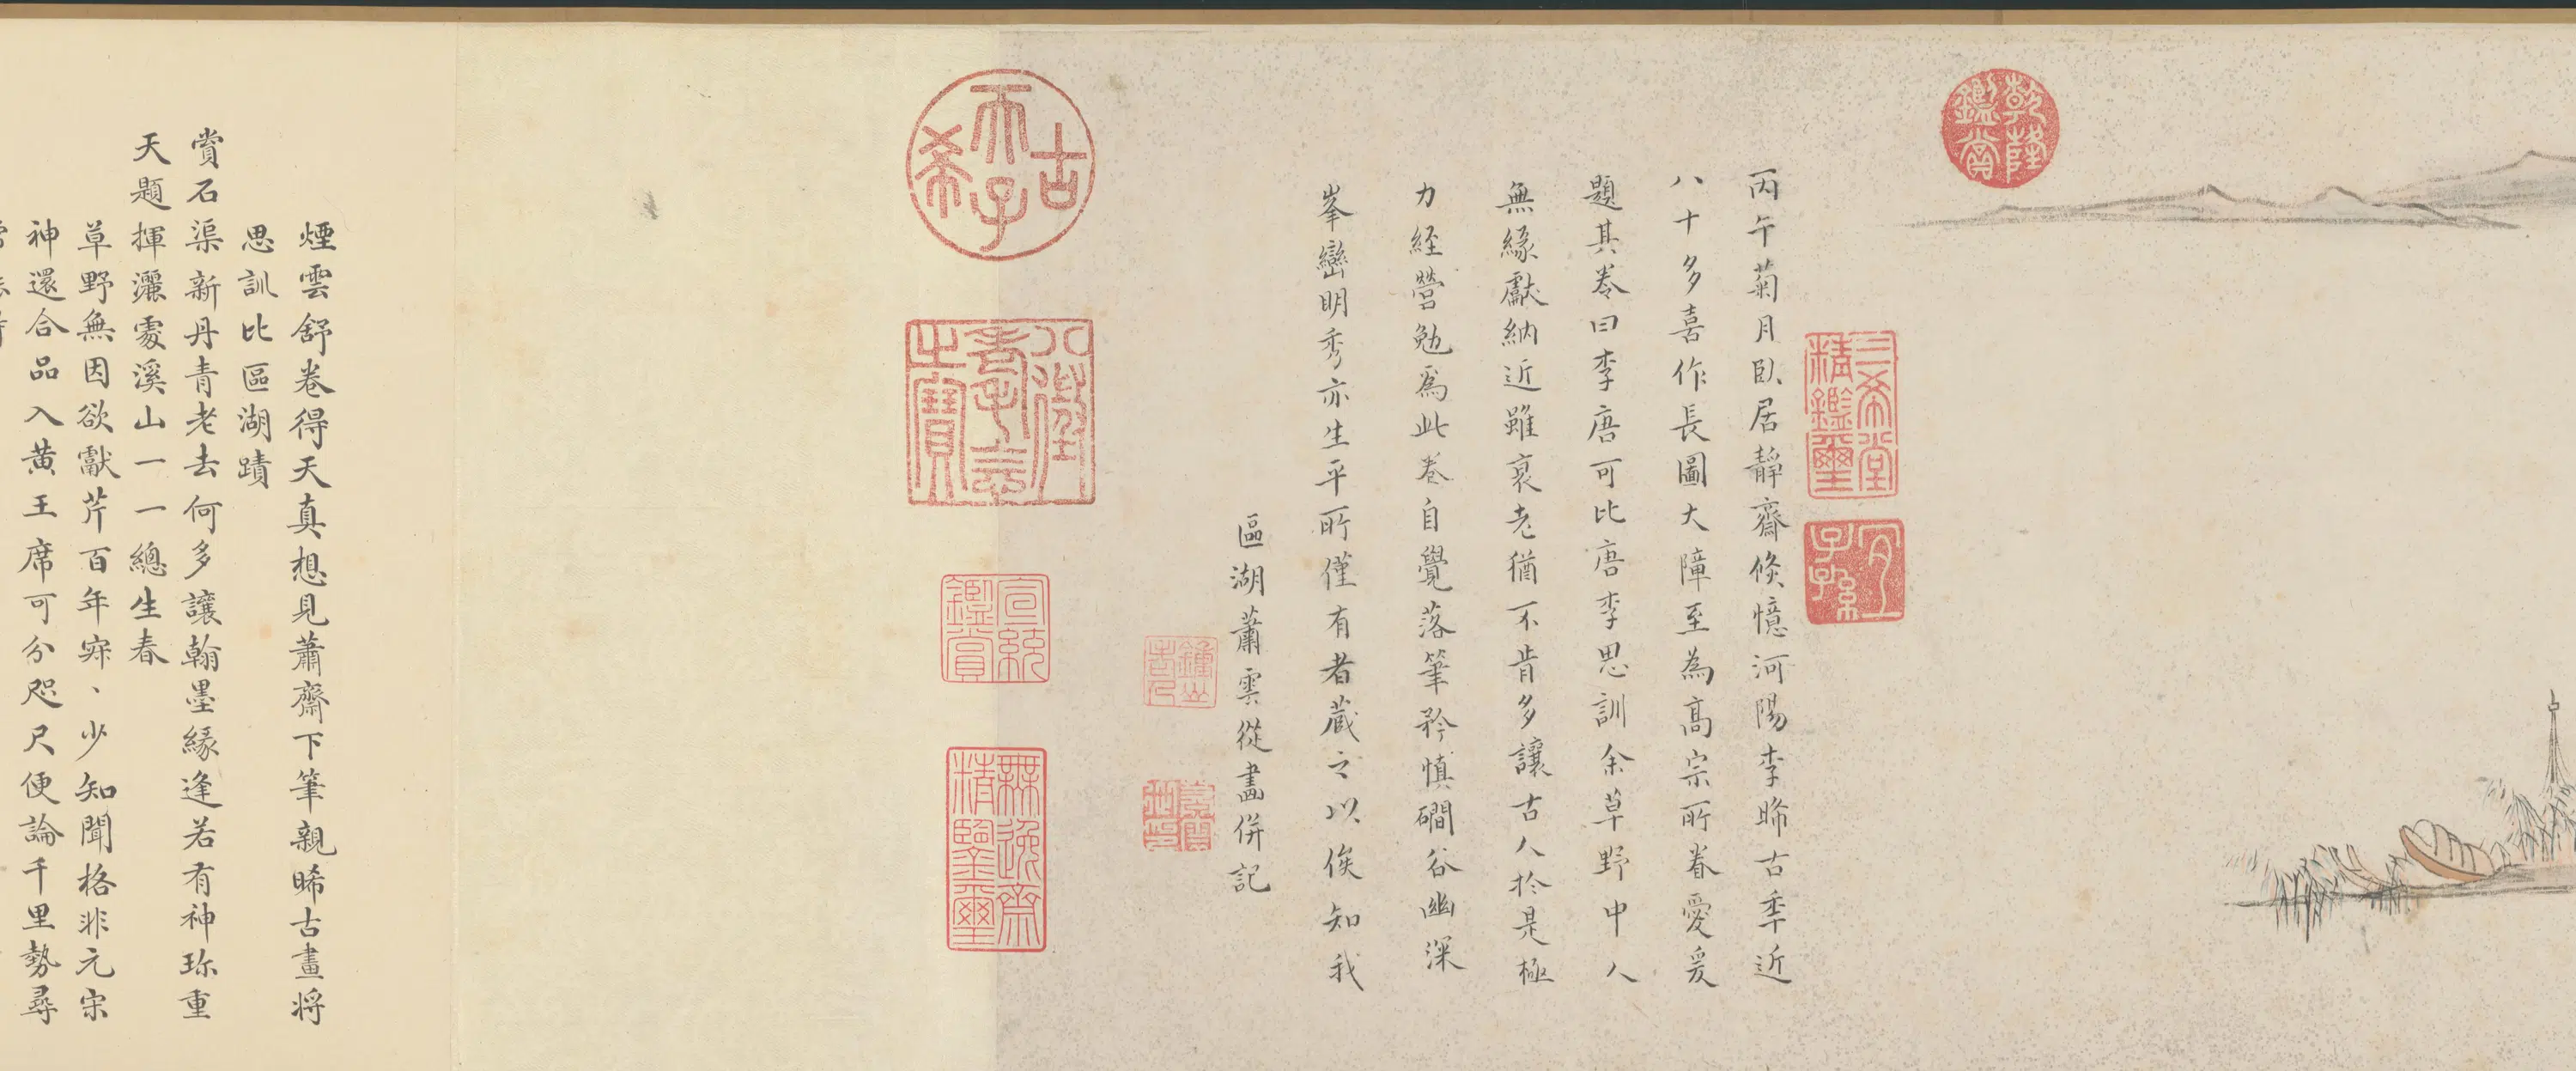 乾隆鑑賞
三希堂精鑑璽
宜子孫
丙午菊月臥居靜齋倐憶河陽李晞古年近
八十多喜作長圖大障至為高宗所眷愛爰
題其卷曰李唐可比唐李思訓余草野中人
無緣獻納近雖衰老猶不肯多讓古人於是極
力経營勉爲此卷自覺落筆矜慎磵谷幽深
峯巒明秀亦生平所僅有者蔵之以俟知我
區湖蕭雲從畫併記
古稀天子
八徵耄念之寶
宣統鑑賞
無逸齋精鑒璽
煙雲舒卷得天真想見蕭齋下筆親晞古畫将
思訓比區湖蹟
賞石渠新丹青老去何多讓翰墨緣逢若有神珎重
天題揮灑處溪山一一總生春
草野無因欲獻芹百年寀、少知聞格非元宋
神還合品入黄王席可分咫尺便論千里勢尋